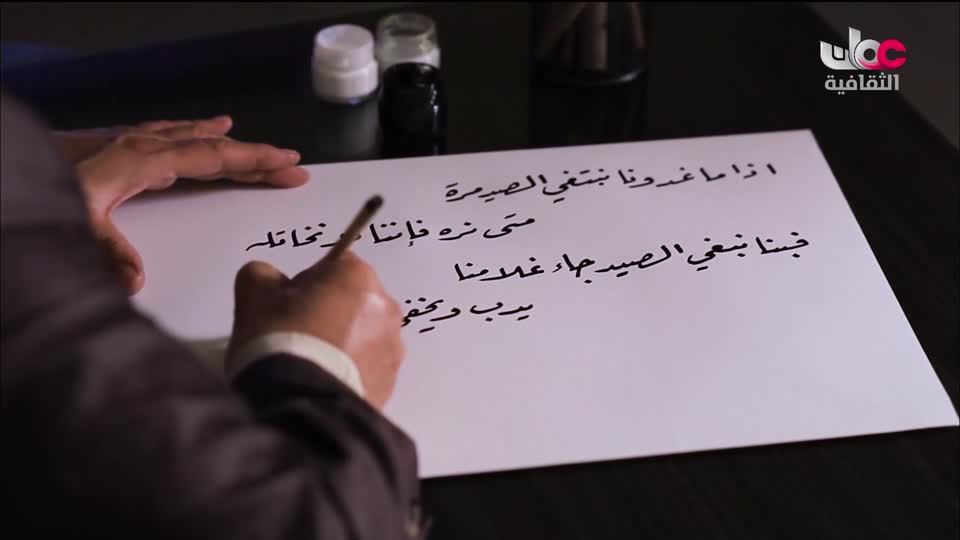 عمان
الثقافية
اذا ما غدونا نبتغي الصيد مرة
متى نره فإننا نخاتله
فبينا نبغي الصيد جاء غلامنا
يدب ويخفي